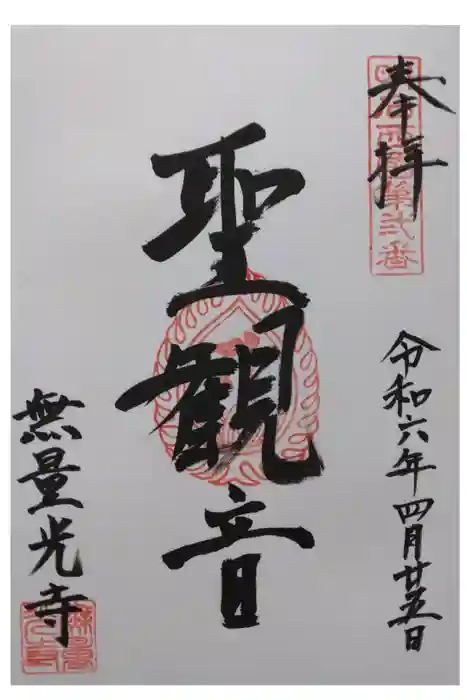 奉拝
令和六年四月廿五日
聖観音
無量光寺